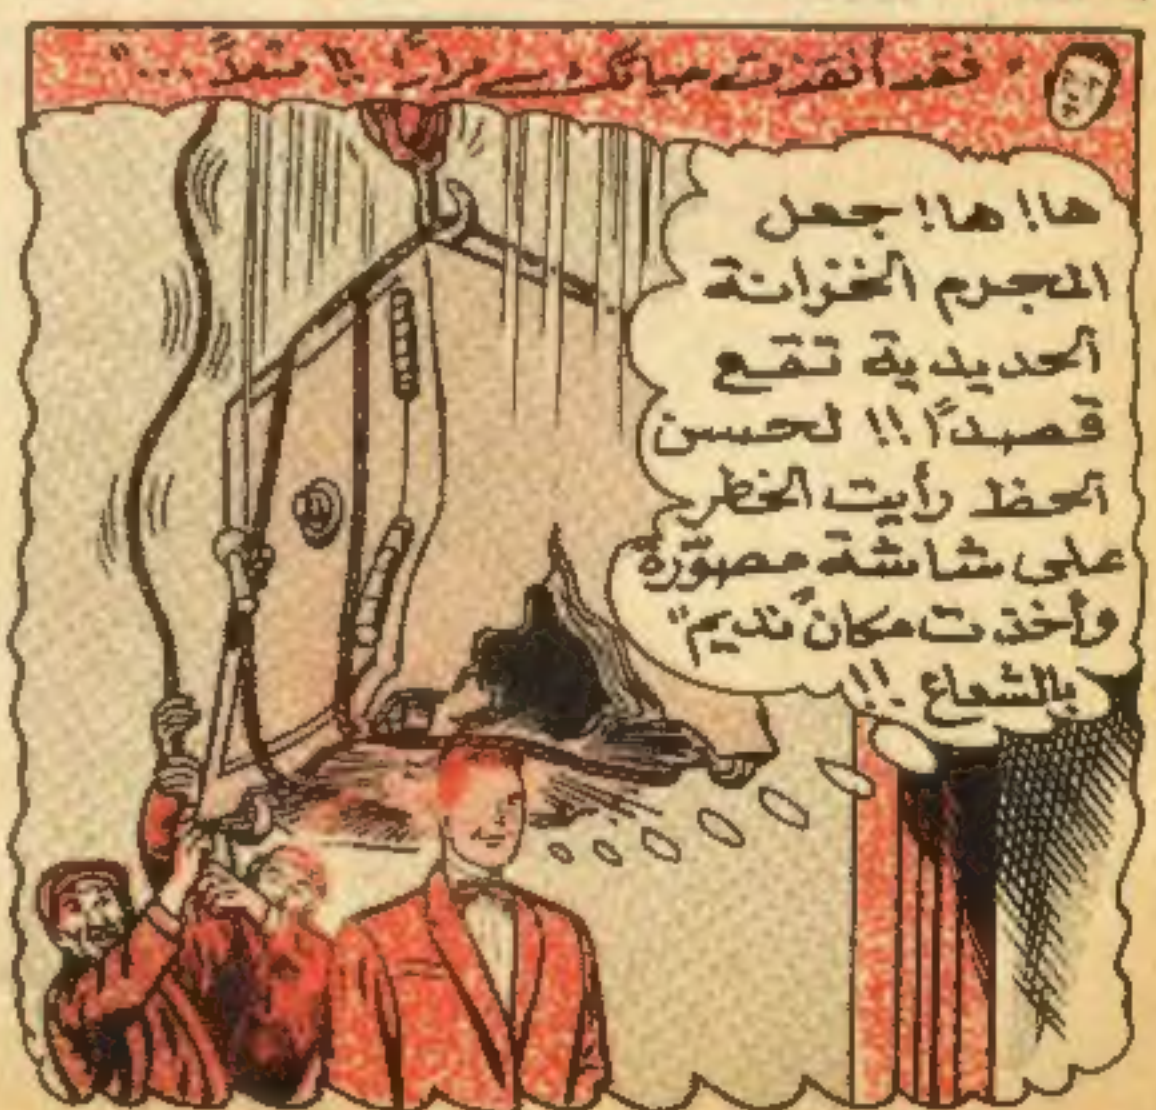 " فقد أنقذت حياتك مراراً !! مثلاً ... "
ها! ها! جعل
المجرم الخزانة
الحديدية تقع
قصداً !! لحسن
الحظ رأيت الخطر
على شاشة مصوّرة
وأخذت مكان "نديم"
بالشعاع !!